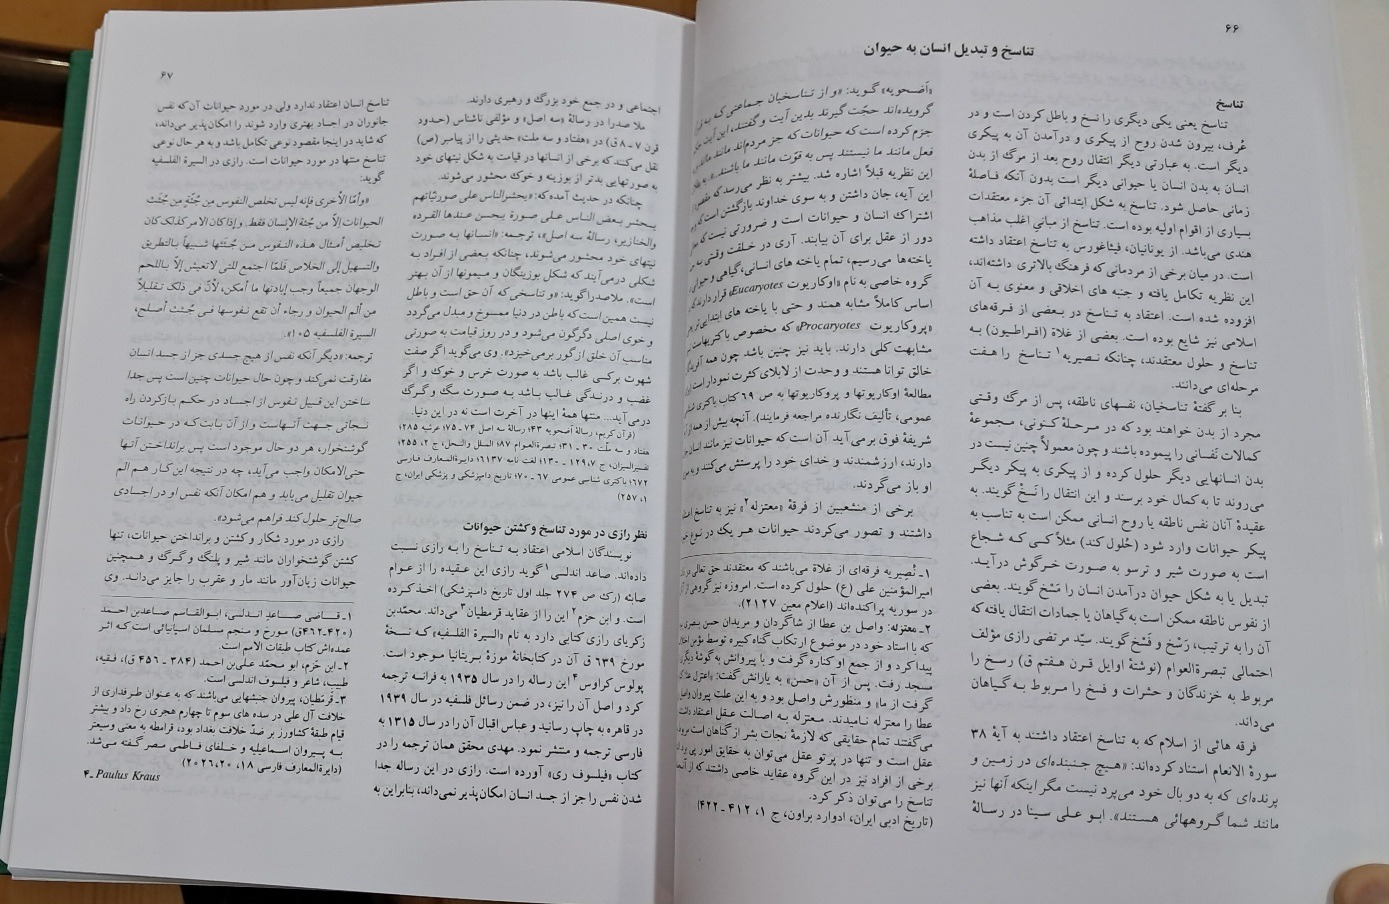 ۶۶
تناسخ و تبدیل انسان به حیوان
تناسخ
تناسخ یعنی یکی دیگری را نسخ و باطل کردن است و در
عُرف، بیرون شدن روح از پیکری و درآمدن آن به پیکری
دیگر است. به عبارتی دیگر انتقال روح بعد از مرگ از بدن
انسان به بدن انسان یا حیوانی دیگر است بدون آنکه فاصلهٔ
زمانی حاصل شود. تناسخ به شکل ابتدائی آن جزء معتقدات
بسیاری از اقوام اولیه بوده است. تناسخ از مبانی اغلب مذاهب
هندی می‌باشد. از یونانیان، فیثاغورس به تناسخ اعتقاد داشته
است. در میان برخی از مردمانی که فرهنگ بالاتری داشته‌اند،
این نظریه تکامل یافته و جنبه های اخلاقی و معنوی به آن
افزوده شده است. اعتقاد به تناسخ در بعضی از فرقه‌های
اسلامی نیز شایع بوده است. بعضی از غلاة (افراطیون) به
تناسخ و حلول معتقدند، چنانکه نصیریه۱ تناسخ را هفت
مرحله‌ای می‌دانند.
بنا بر گفتهٔ تناسخیان، نفسهای ناطقه، پس از مرگ وقتی
مجرد از بدن خواهند بود که در مرحلهٔ کنونی، مجموعهٔ
کمالات نفسانی را پیموده باشند و چون معمولاً چنین نیست در
بدن انسانهایی دیگر حلول کرده و از پیکری به پیکر دیگر
می‌روند تا به کمال خود برسند و این انتقال را نَسْخْ گویند. به
عقیدهٔ آنان نفس ناطقه یا روح انسانی ممکن است به تناسب به
پیکر حیوانات وارد شود (حُلول کند) مثلاً کسی که شجاع
است به صورت شیر و ترسو به صورت خرگوش درآید.
تبدیل یا به شکل حیوان درآمدن انسان را مَسْخ گویند. بعضی
از نفوس ناطقه ممکن است به گیاهان یا جمادات انتقال یافته که
آن را به ترتیب، رَسْخ و فَسْخ گویند. سیّد مرتضی رازی مؤلف
احتمالی تبصرةالعوام (نوشتهٔ اوایل قرن هفتم ق) رسخ را
مربوط به خزندگان و حشرات و فسخ را مربوط به گیاهان
می‌داند.
فرقه هائی از اسلام که به تناسخ اعتقاد داشتند به آیهٔ ۳۸
سورهٔ الانعام استناد کرده‌اند: «هیچ جنبنده‌ای در زمین و
پرنده‌ای که به دو بال خود می‌پرد نیست مگر اینکه آنها نیز
مانند شما گروههائی هستند». ابو علی سینا در رسالهٔ
«اَضحویه» گوید: «و از تناسخیان جماعتی که به
گرویده‌اند حجّت گیرند بدین آیت و گفتند، این آیت
جزم کرده است که حیوانات که جز مردم‌اند مانند
فعل مانند ما نیستند پس به قوّت مانند ما باشند.».
این نظریه قبلاً اشاره شد. بیشتر به نظر می‌رسد که
این آیه، جان داشتن و به سوی خداوند بازگشتن است
اشتراک انسان و حیوانات است و ضرورتی نیست که
دور از عقل برای آن بیابند. آری در خلقت وقتی به
یاخته‌ها می‌رسیم، تمام یاخته های انسانی، گیاهی و
گروه خاصی به نام «اوکاریوت Eucaryotes» قرار دارند
اساس کاملاً مشابه همند و حتی با یاخته های ابتدایی
«پروکاریوت Procaryotes» که مخصوص باکتریهاست
مشابهت کلی دارند. باید نیز چنین باشد چون همه
خالق توانا هستند و وحدت از لابلای کثرت نمودار است
مطالعهٔ اوکاریوتها و پروکاریوتها به ص ۶۹ کتاب باکتری
عمومی، تألیف نگارنده مراجعه فرمایند). آنچه بیش از همه از
شریفهٔ فوق برمی‌آید آن است که حیوانات نیز مانند انسان
دارند، ارزشمندند و خدای خود را پرستش می‌کنند و به
او باز می‌گردند.
برخی از منشعبین از فرقهٔ «معتزله۲» نیز به تناسخ
داشتند و تصور می‌کردند حیوانات هر یک در نوع
۱ـ نُصیریه فرقه‌ای از غلاة می‌باشند که معتقدند حق تعالی
امیرالمؤمنین علی (ع) حلول کرده است. امروزه نیز گروهی از
در سوریه پراکنده‌اند (اعلام معین ۲۱۲۷).
۲ـ معتزله: واصل بن عطا از شاگردان و مریدان حسن بصری
که با استاد خود در موضوع ارتکاب گناه کبیره توسط مؤمن
پیدا کرد و از جمع او کناره گرفت و با پیروانش به گوشهٔ دیگر
مسجد رفت. پس از آن «حسن» به یارانش گفت: «اعتزل
گرفت از ما» و منظورش واصل بود و به این علت پیروان
عطا را معتزله نامیدند. معتزله به اصالت عقل اعتقاد
می‌گفتند تمام حقایقی که لازمهٔ نجات بشر از گناهان است
عقل است و تنها در پرتو عقل می‌توان به حقایق امور پی
برخی از افراد نیز در این گروه عقاید خاصی داشتند که از
تناسخ را می‌توان ذکر کرد.
(تاریخ ادبی ایران، ادوارد براون، ج ۱، ۴۱۲ ـ ۴۲۲)
۶۷
اجتماعی و در جمع خود بزرگ و رهبری دارند.
ملا صدرا در رسالهٔ «سه اصل» و مؤلفی ناشناس (حدود
قرن ۷ ـ ۸ ق) در «هفتاد و سه ملت» حدیثی را از پیامبر (ص)
نقل می‌کنند که برخی از انسانها در قیامت به شکل نیتهای خود
به صورتهایی بدتر از بوزینه و خوک محشور می‌شوند.
چنانکه در حدیث آمده که: «یحشرالناس علی صورنیاتهم
یحشر بعض الناس علی صورة یحسن عندها القردة
والخنازیر، رسالهٔ سه اصل»، ترجمه: «انسانها به صورت
نیتهای خود محشور می‌شوند، چنانکه بعضی از افراد به
شکلی درمی‌آیند که شکل بوزینگان و میمونها از آن بهتر
است». ملاصدرا گوید: «و تناسخی که آن حق است و باطل
نیست همین است که باطن در دنیا ممسوخ و مبدل می‌گردد
و خوی اصلی دگرگون می‌شود و در روز قیامت به صورتی
مناسب آن خلق از گور برمی‌خیزد». وی می‌گوید اگر صفت
شهوت بر کسی غالب باشد به صورت خرس و خوک و اگر
غضب و درندگی غالب باشد به صورت سگ و گرگ
درمی‌آید... منتها همهٔ اینها در آخرت است نه در این دنیا.
(قرآن کریم؛ رسالهٔ اضحویه ۴۳؛ رسالهٔ سه اصل ۷۴ ـ ۷۵؛ عرشیه ۲۸۵؛
هفتاد و سه ملت ۳۰ ـ ۳۱؛ تبصرةالعوام ۸۷؛ الملل والنحل، ج ۲، ۲۵۵؛
تفسیرالمیزان، ج ۷، ۱۲۹ ـ ۱۳۰؛ لغت نامه ۶۱۳۷؛ دایرةالمعارف فارسی
۶۷۲؛ باکتری شناسی عمومی ۶۷ ـ ۷۰؛ تاریخ دامپزشکی و پزشکی ایران، ج
۱، ۲۵۷)
نظر رازی در مورد تناسخ و کشتن حیوانات
نویسندگان اسلامی اعتقاد به تناسخ را به رازی نسبت
داده‌اند. صاعد اندلسی۱ گوید رازی این عقیده را از عوام
صابئه (رک ص ۲۷۴ جلد اول تاریخ دامپزشکی) اخذ کرده
است. و ابن حزم۲ این را از عقاید قرمطیان۳ می‌داند. محمدبن
زکریای رازی کتابی دارد به نام «السیرة الفلسفیه» که نسخهٔ
مورخ ۶۳۹ ق آن در کتابخانهٔ موزهٔ بریتانیا موجود است.
پولوس کراوس۴ این رساله را در سال ۱۹۳۵ به فرانسه ترجمه
کرد و اصل آن را نیز، در ضمن رسائل فلسفیه در سال ۱۹۳۹
در قاهره به چاپ رسانید و عباس اقبال آن را در سال ۱۳۱۵ به
فارسی ترجمه و منتشر نمود. مهدی محقق همان ترجمه را در
کتاب «فیلسوف ری» آورده است. رازی در این رساله جدا
شدن نفس را جز از جسد انسان امکان‌پذیر نمی‌داند، بنابراین به
تناسخ انسان اعتقاد ندارد ولی در مورد حیوانات آن که نفس
جانوران در اجساد بهتری وارد شوند را امکان‌پذیر می‌داند،
که شاید در اینجا مقصود نوعی تکامل باشد و به هر حال نوعی
تناسخ منتها در مورد حیوانات است. رازی در السیرة الفلسفیه
گوید:
«وأمّا الأخری فإنه لیس تخلص النفوس من جُثّةٍ من جُثث
الحیوانات إلاّ من جُثة الإنسان فقط. وإذا کان الامر کذلک کان
تخلیص أمثال هذه النفوس من جُثثها شبیهاً بالتطریق
والتسهیل إلی الخلاص فلمّا اجتمع للتی لاتعیش إلاّ باللحم
الوجهان جمیعاً وجب إبادتها ما أمکن، لأنّ فی ذلک تقلیلاً
من ألم الحیوان و رجاء أن تقع نفوسها فی جُثث أصلح،
السیرة الفلسفیه ۱۰۵».
ترجمه: «دیگر آنکه نفس از هیچ جسدی جز از جسد انسان
مفارقت نمی‌کند و چون حال حیوانات چنین است پس جدا
ساختن این قبیل نفوس از اجساد در حکم بازکردن راه
نجاتی جهت آنهاست و از آن بابت که در حیوانات
گوشتخوار، هر دو حال موجود است پس برانداختن آنها
حتی‌الامکان واجب می‌آید، چه در نتیجه این کار هم الم
حیوان تقلیل می‌یابد و هم امکان آنکه نفس او در اجسادی
صالح‌تر حلول کند فراهم می‌شود».
رازی در مورد شکار و کشتن و برانداختن حیوانات، تنها
کشتن گوشتخواران مانند شیر و پلنگ و گرگ و همچنین
حیوانات زیان‌آور مانند مار و عقرب را جایز می‌داند. وی
۱ـ قاضی صاعد اندلسی، ابوالقاسم صاعدبن احمد
(۴۲۰ـ۴۶۲ق) مورخ و منجم مسلمان اسپانیائی است که اثر
عمده‌اش کتاب طبقات الامم است.
۲ـ ابن حَزم، ابو محمّد علی‌بن احمد (۳۸۴ ـ ۴۵۶ ق)، فقیه،
طبیب، شاعر و فیلسوف اندلسی است.
۳ـ قُرمَطیان، پیروان جنبشهایی می‌باشند که به عنوان طرفداری از
خلافت آل علی در سده های سوم تا چهارم هجری رخ داد و بیشتر
قیام طبقهٔ کشاورز بر ضدّ خلافت بغداد بود، قرامطه به معنی وسیعتر
به پیروان اسماعیلیه و خلفای فاطمی مصر گفته می‌شد.
(دایرةالمعارف فارسی ۱۸، ۲۰، ۲۰۲۶)
۴ـ Paulus Kraus